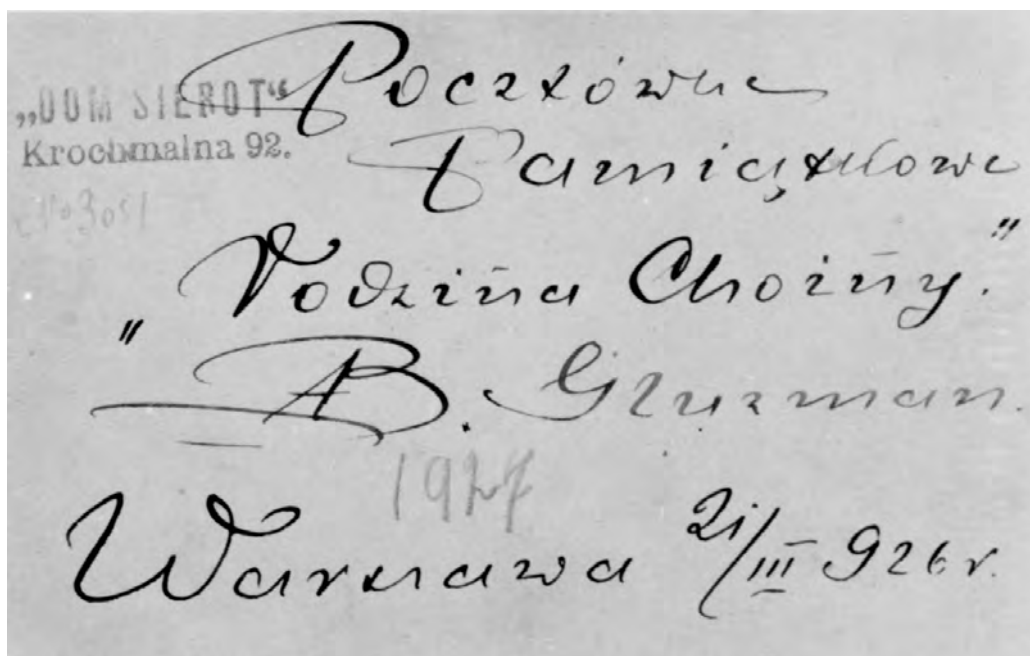 „DOM SIEROT“
Krochmalna 92.
Pocztówka
Pamiątkowa
„Rodzina Choiny.”
AB. Gluzman.
1927
Warszawa 21/III 926 r.